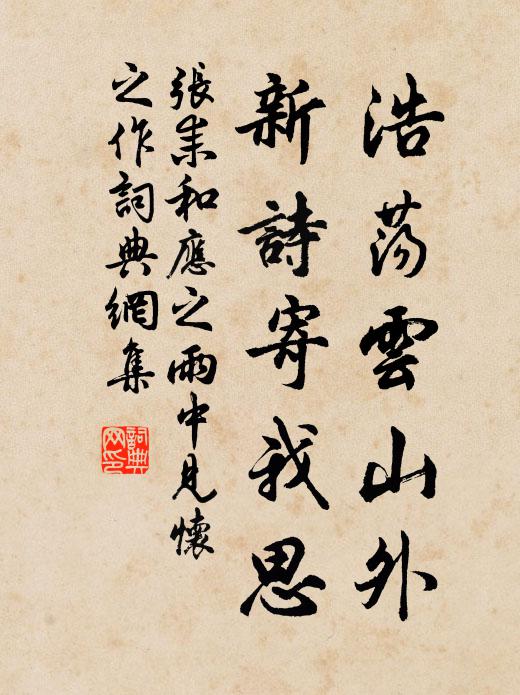 浩蕩雲山外
新詩寄我思
張耒和應之雨中見懷
之作詞典網集
詞典
网印